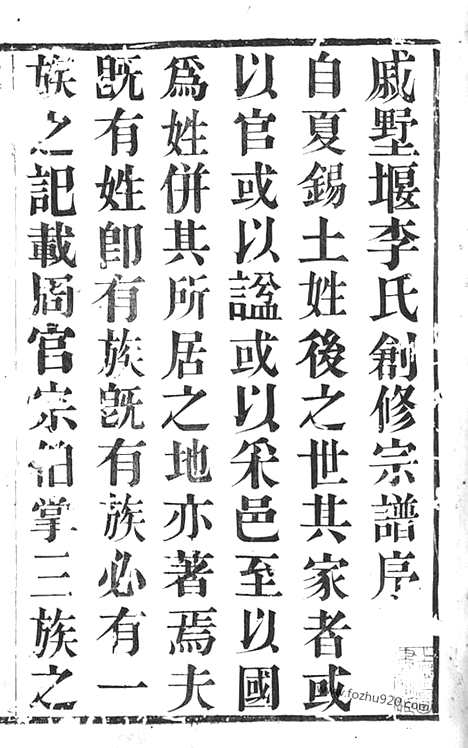 戚墅堰李氏創修宗譜序
自夏錫土姓後之世其家者或
以官或以謚或以采邑至以國
爲姓併其所居之地亦著焉夫
既有姓卽有族既有族必有一
族之記載周官宗伯掌三族之
www.fozhu920.com